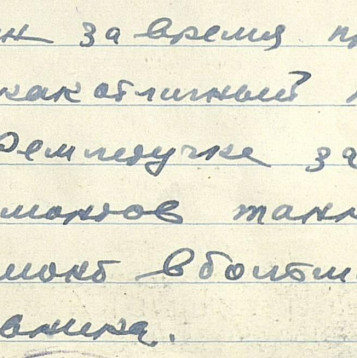 н за время пр
как отличный
Ремлетучке за
монтов танк
монт в больш